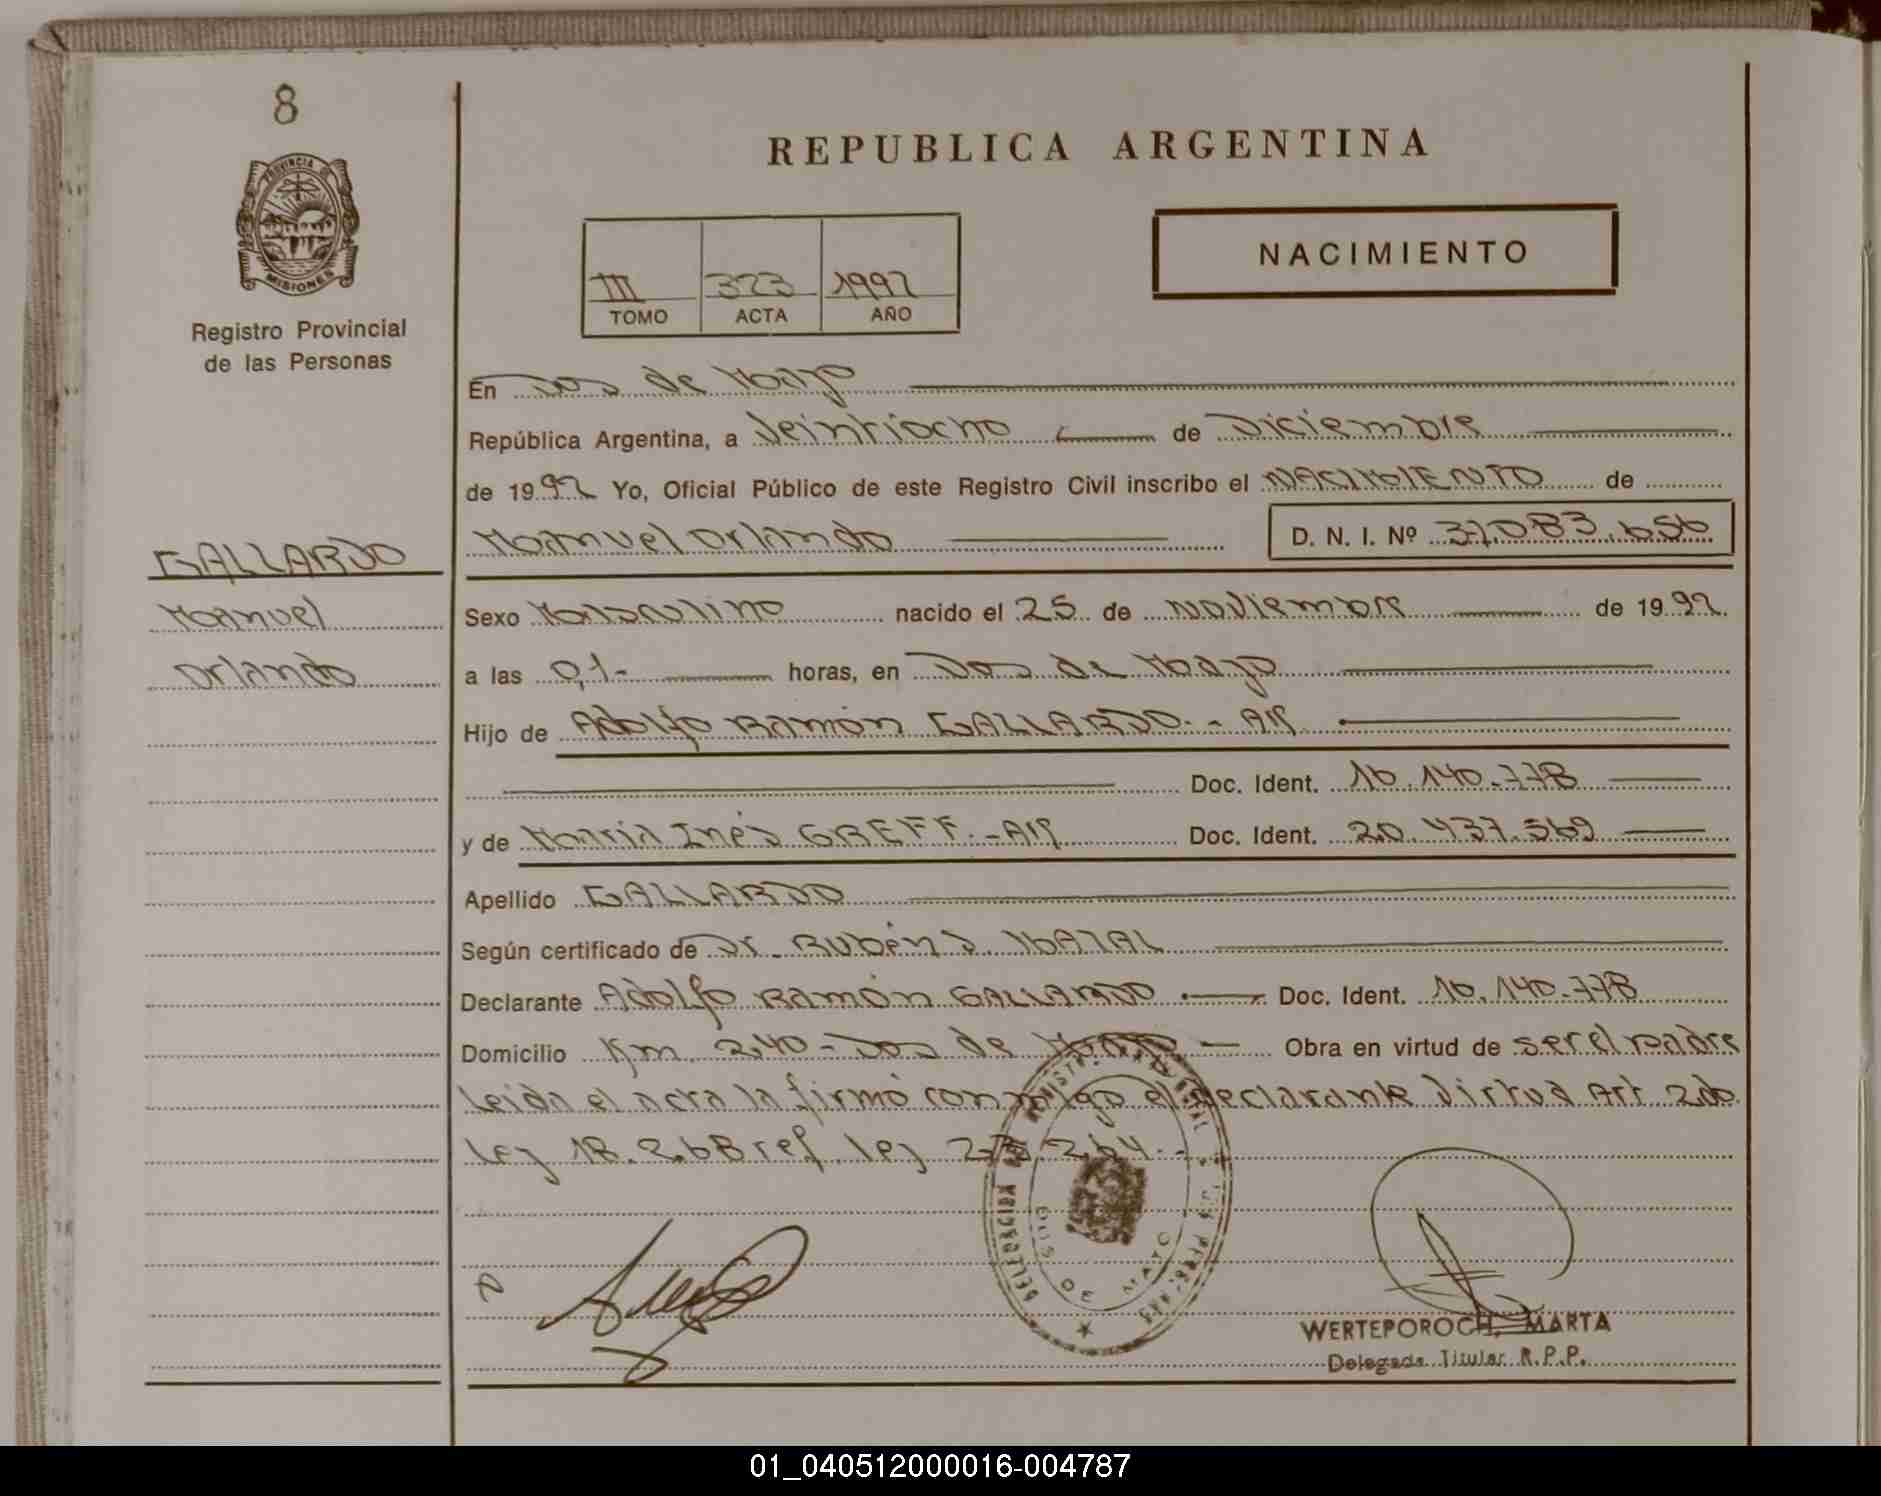 8
REPUBLICA ARGENTINA
PROVINCIA DE
MISIONES
Registro Provincial
de las Personas
III 323 1992
TOMO ACTA AÑO
NACIMIENTO
En Dos de Mayo
República Argentina, a Veintiocho de Diciembre
de 1992 Yo, Oficial Público de este Registro Civil inscribo el NACIMIENTO de
Manuel Orlando D. N. I. Nº 37.083.656
GALLARDO
Manuel
Orlando
Sexo Masculino nacido el 25 de Noviembre de 1992
a las 0,1- horas, en Dos de Mayo
Hijo de Adolfo Ramón GALLARDO.- Arg
Doc. Ident. 16.140.778
y de María Inés GREFF.-Arg Doc. Ident. 20.437.569
Apellido GALLARDO
Según certificado de Dr. Rubén D.
Declarante Adolfo Ramón GALLARDO Doc. Ident. 16.140.778
Domicilio Km. 240-Dos de Mayo Obra en virtud de ser el padre
Leída el acta la firmó conmigo el declarante Virtud Art 2do
Ley 18.268 ref. ley
DOS DE MAYO
WERTEPOROCH, MARTA
Delegada Titular R.P.P.
01_040512000016-004787